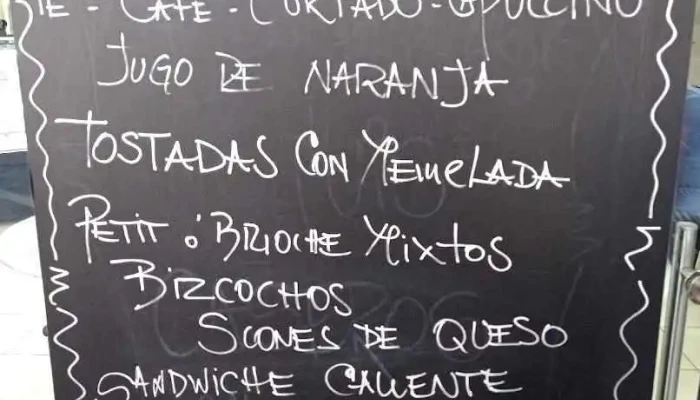 TE - CAFE - CORTADO - CAPUCCINO
JUGO DE NARANJA
TOSTADAS CON MERMELADA
PETIT o' BRIOCHE MIXTOS
BIZCOCHOS
SCONES DE QUESO
SANDWICHE CALIENTE